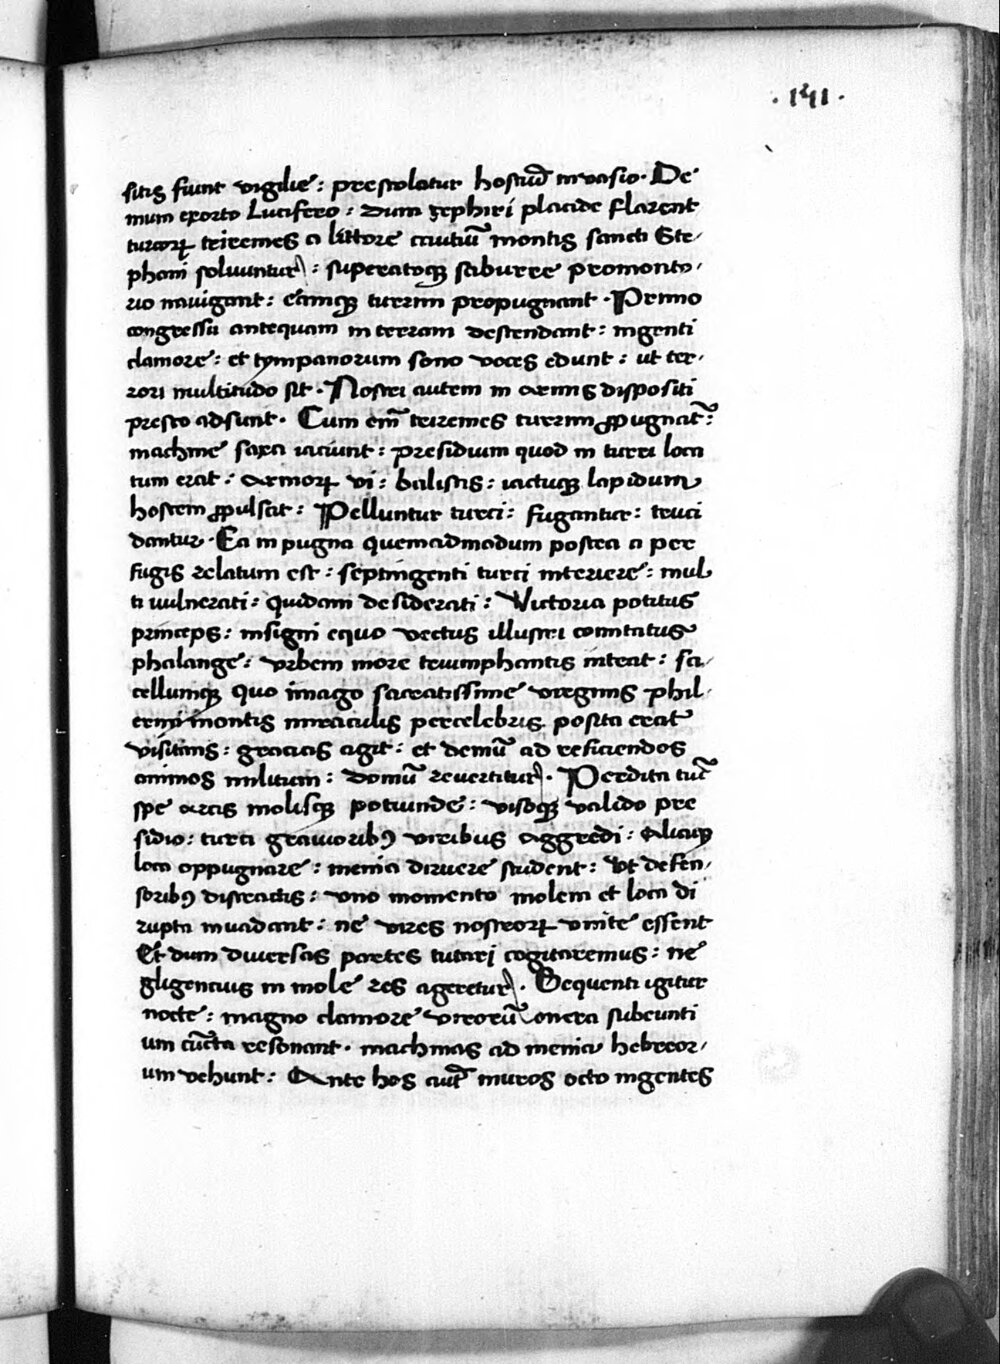 · 141 ·
sitis fiunt vigilie : prestolatur hostiū invasio · De
mum exorto Lucifero : dum zephiri placide flarent
turcorꝝ triremes a littore citatiū montis sancti Ste-
phani solvuntur : superatoqꝫ saburre promonto-
rio navigant : eamqꝫ turrim propugnant · Primo
congressu antequam in terram descendant : ingenti
clamore : et tympanorum sono voces edunt : ut ter-
rori multitudo sit · Nostri autem in armis dispositi
presto adsunt · Cum em̄ triremes turrim ꝓpugnāt :
machine saxa iaciunt : presidium quod in turri loca
tum erat : armorꝝ vi : balistis : iactuqꝫ lapidum
hostem ꝓpulsat : Pelluntur turci : fugantur : truci
dantur · Ea in pugna quemadmodum postea a per
fugis relatum est : septingenti turci interiere : mul
ti vulnerati : quidam desiderati : Victoria potitus
princeps : insigni equo vectus illustri comitatus
phalange : urbem more triumphantis intrat : sa-
cellumqꝫ quo imago sacratissime virginis phil-
ermi montis miraculis percelebris posita erat
visitans : gracias agit : et demū ad reficiendos
animos militum : domū revertitur · Perdita tūc
spe arcis molisqꝫ potiunde : visoqꝫ valido pre
sidio : turci graviorib9 viribus aggredi : Aliaqꝫ
loca oppugnare : menia diruere student : Ut defen-
sorib9 distractis : uno momento molem et loca di
rupta invadant : ne vires nostrorꝝ unite essent
Et dum diversas partes tutari cogitaremus : ne
gligencius in mole res ageretur · Sequenti igitur
nocte : magno clamore virorū onera subeunti
um cūcta resonant · machinas ad menia hebreor-
um vehunt : Ante hos aut̄ muros octo ingentes